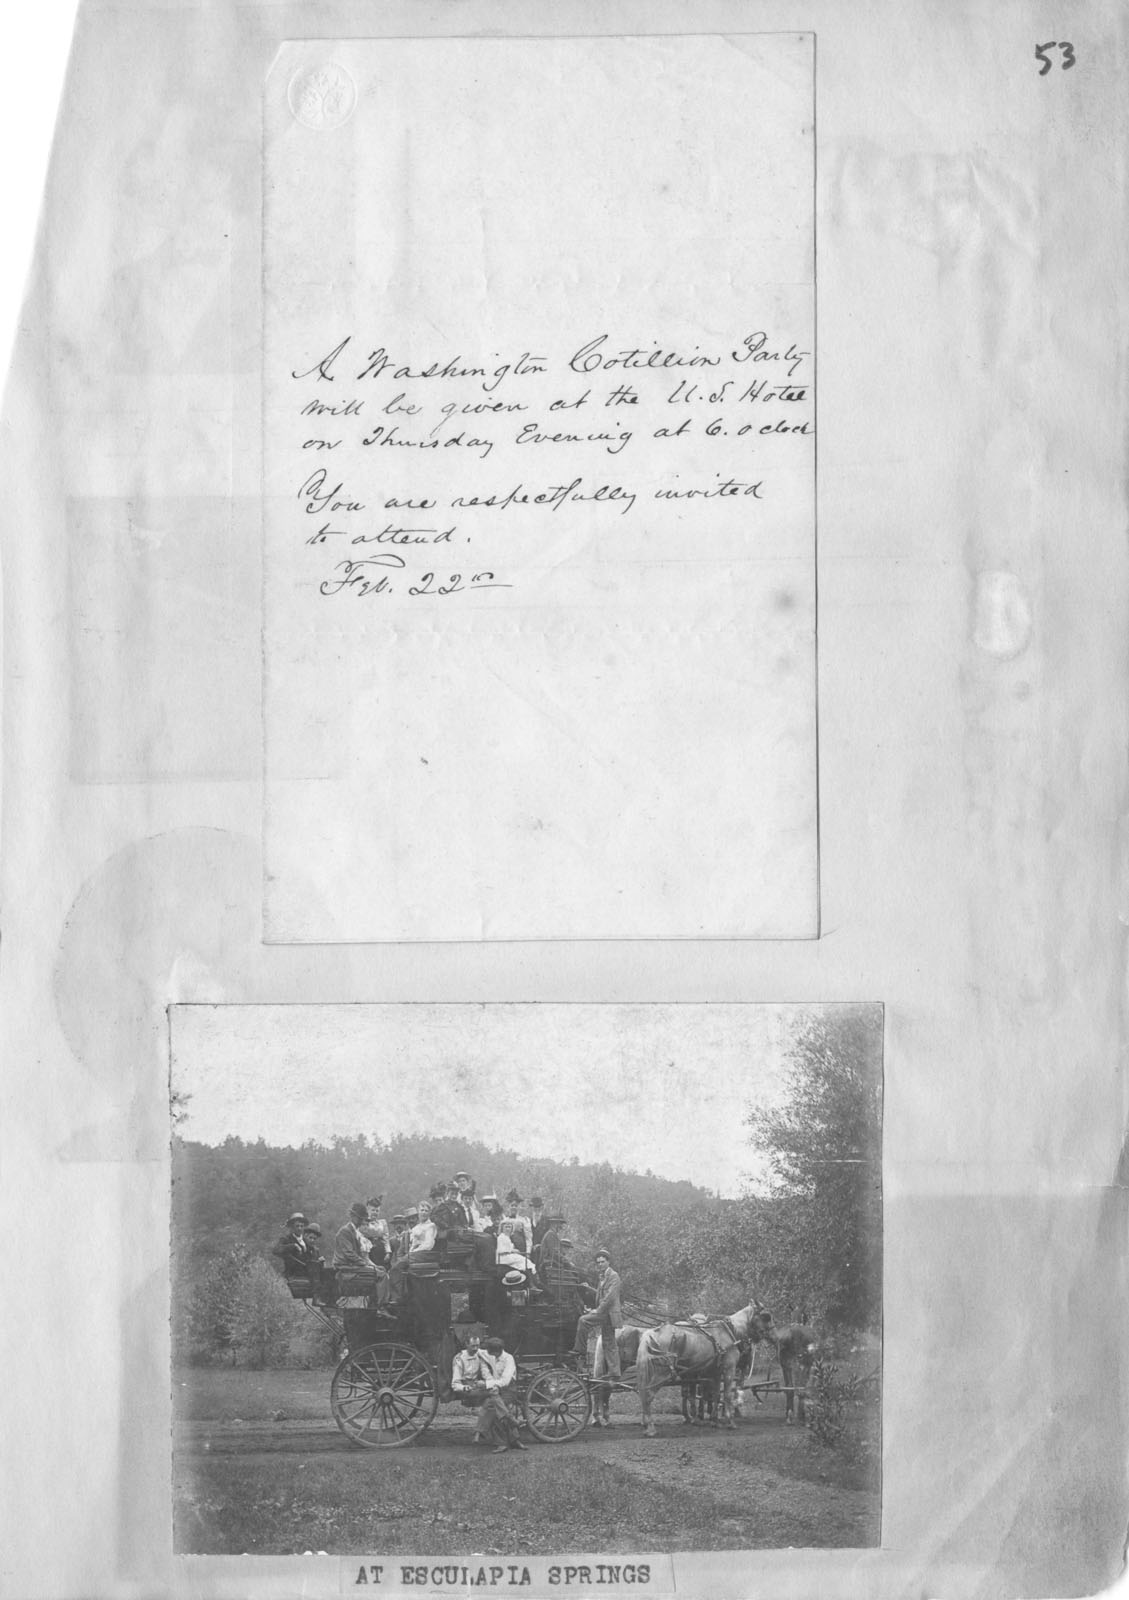 53
A Washington Cotillion Party
will be given at the U.S. Hotel
on Thursday Evening at 6. o clock
You are respectfully invited
to attend.
Feb. 22nd
AT ESCULAPIA SPRINGS